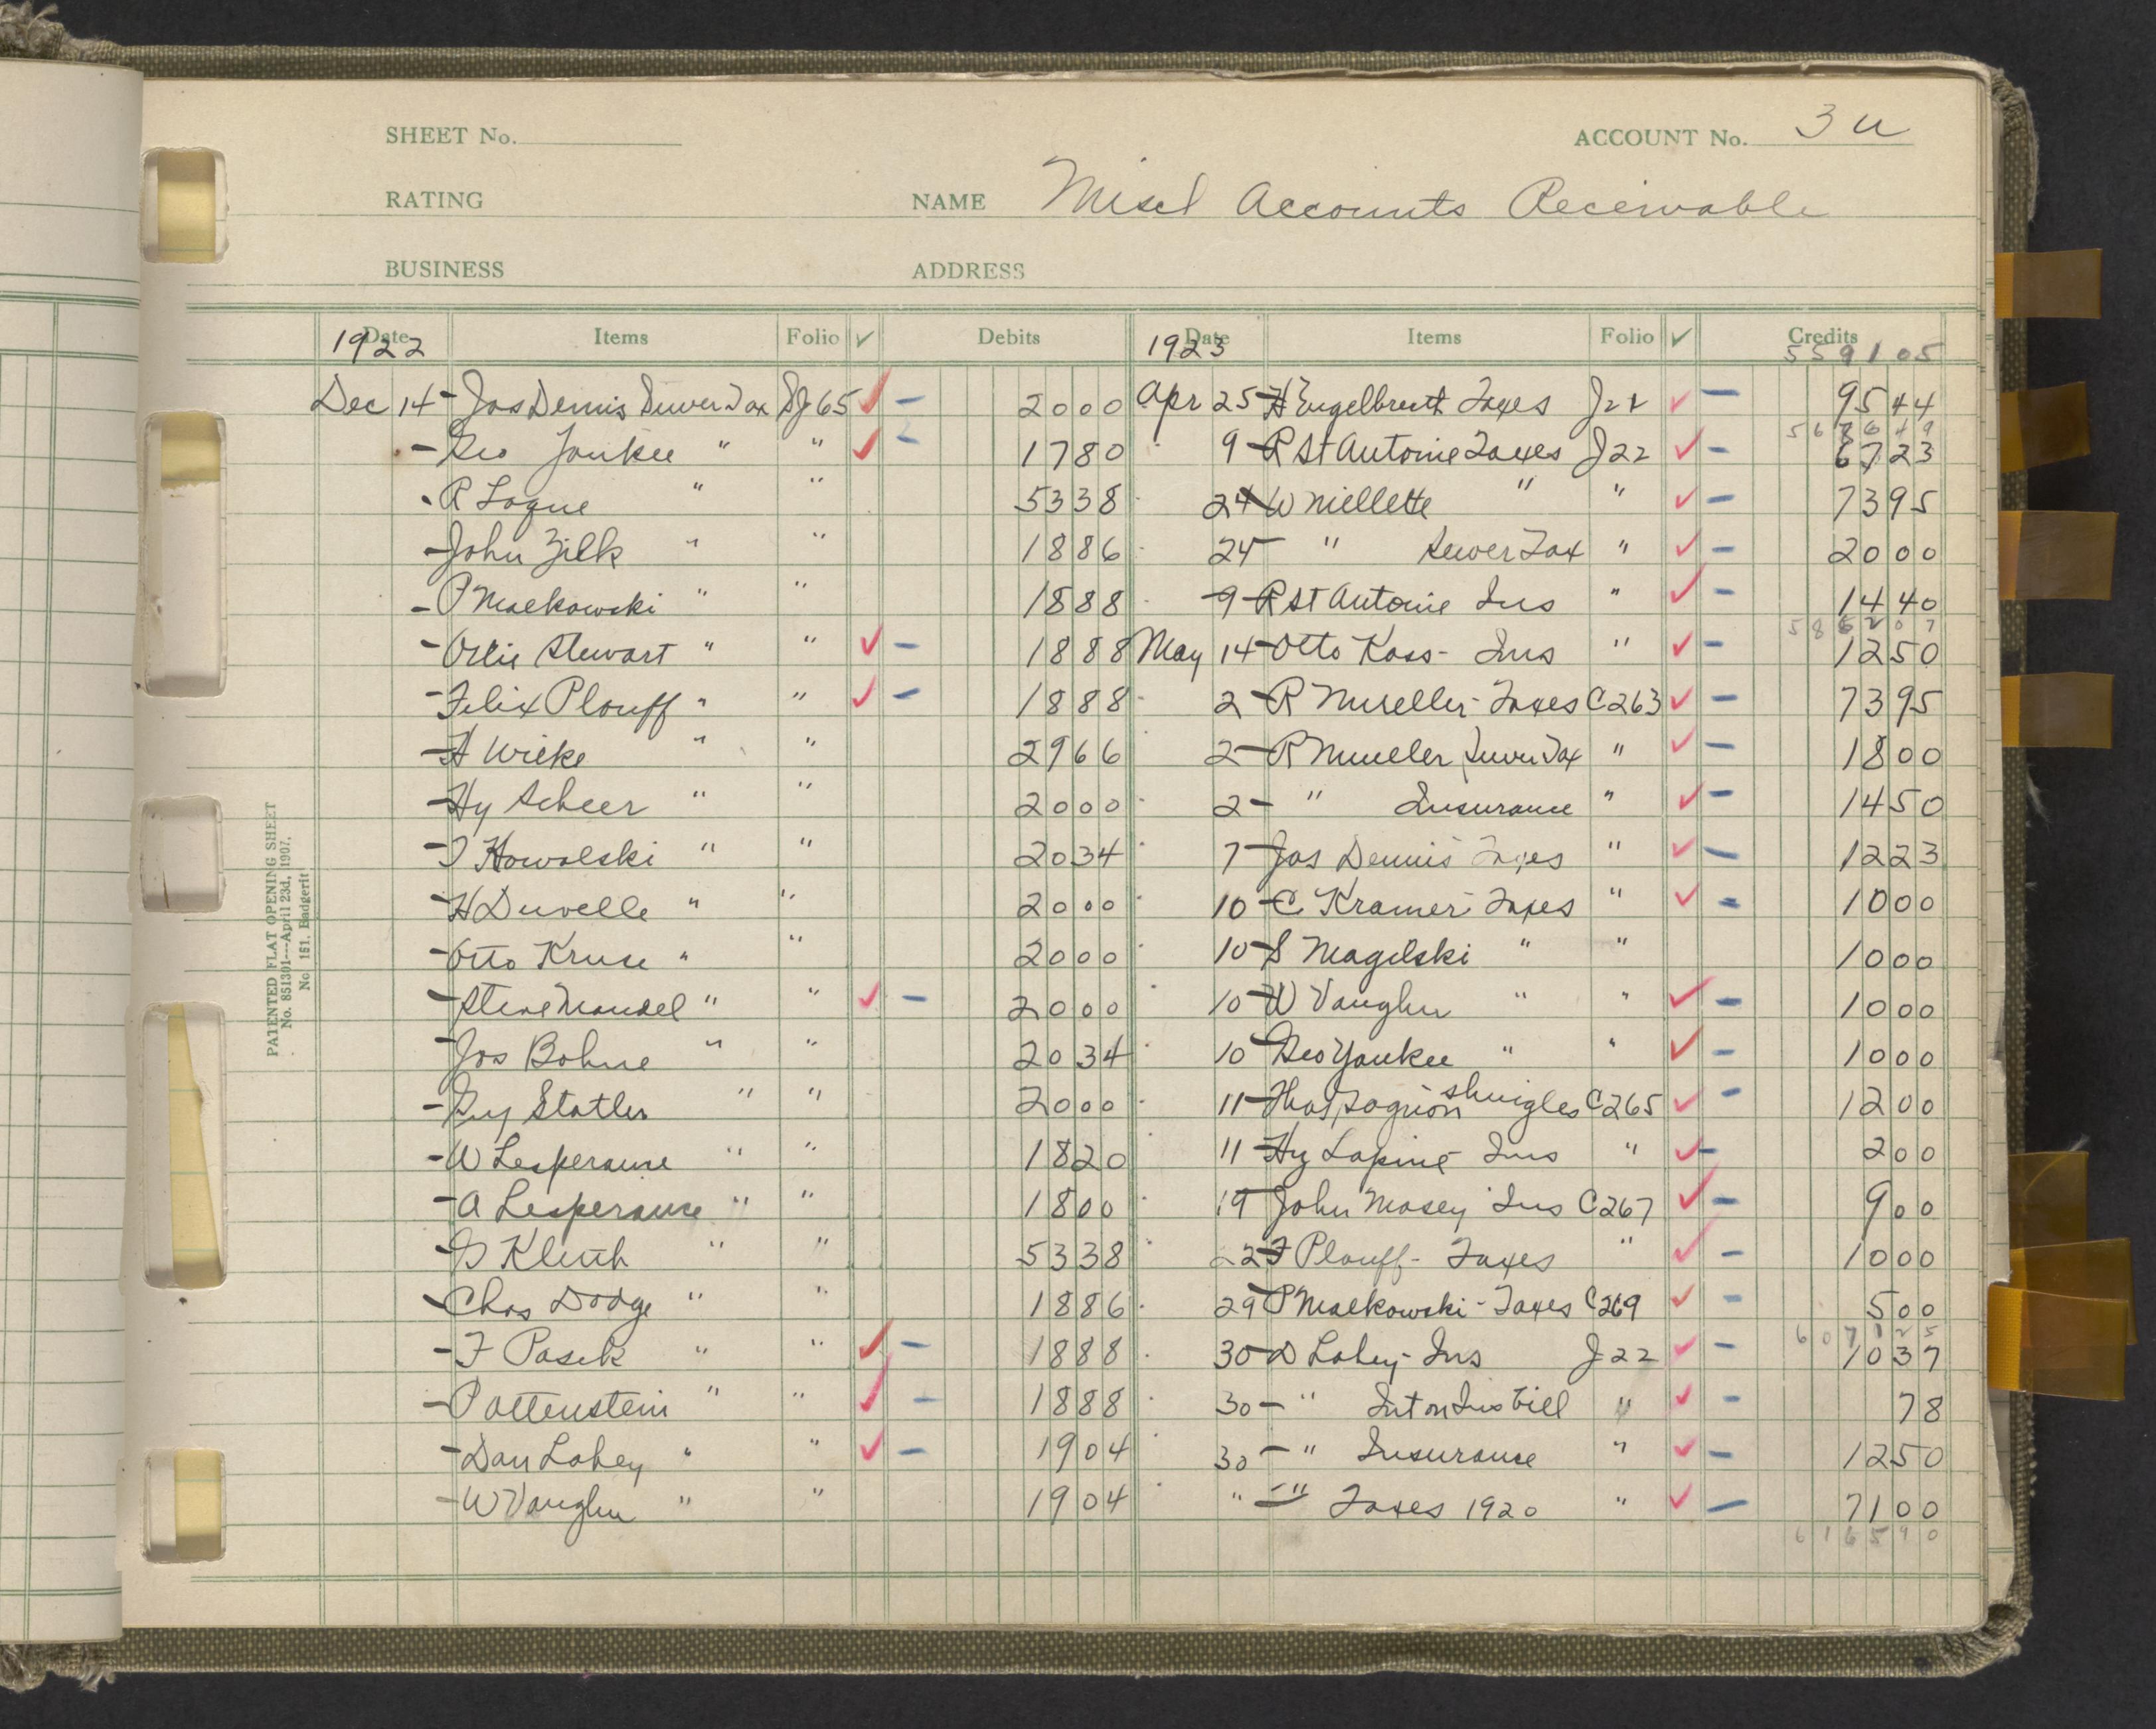 SHEET No. ACCOUNT No. 3 u
RATING NAME Miscl Accounts Receivable
BUSINESS ADDRESS
Date Items Folio ✓ Debits Date Items Folio ✓ Credits
1922 1923 5591 05
Dec 14 - Jas Dennis Sewer Tax SJ65 ✓ - 20 00 Apr 25 - H Engelbrecht Taxes J22 ✓ - 95 44
- Geo Yankee " " ✓ - 17 80 9 - R St Antoine Taxes J22 ✓ - 67 23
- R Logue " " 53 38 24 W Niellette " " ✓ - 73 95
- John Zilk " " 18 86 24 - " Sewer Tax " ✓ - 20 00
- P Malkowski " " 18 88 9 - R St Antoine Ins " ✓ - 14 40
- Ollie Stewart " " ✓ - 18 88 May 14 - Otto Kass - Ins " ✓ - 12 50
- Felix Plouff " " ✓ - 18 88 2 - R Mueller - Taxes C263 ✓ - 73 95
- H Wieke " " 29 66 2 - R Mueller Sewer Tax " ✓ - 18 00
- Hy Scheer " " 20 00 2 - " Insurance " ✓ - 14 50
- I Kowalski " " 20 34 7 - Jas Dennis Taxes " ✓ - 12 23
- H Duvelle " " 20 00 10 - C Kramer - Taxes " ✓ - 10 00
- Otto Kruse " " 20 00 10 - S Magelski " " 10 00
- Steve Mandel " " ✓ - 20 00 10 - W Vaughn " " ✓ - 10 00
- Jos Bohne " " 20 34 10 - Geo Yankee " " ✓ - 10 00
- Guy Statler " " 20 00 11 - Gagnon Shingles C265 ✓ - 12 00
- W Lesperance " " 18 20 11 - Hy Lapine - Ins " ✓ - 2 00
- A Lesperance " " 18 00 19 - John Mosey Ins C267 ✓ - 9 00
- G Kleuh " " 53 38 22 - F Plouff - Taxes " ✓ - 10 00
- Chas Dodge " " 18 86 29 - P Malkowski - Taxes C269 ✓ - 5 00
- F Pasek " " ✓ - 18 88 30 - D Lahey - Ins J22 ✓ - 10 37
- P Ottenstein " " ✓ - 18 88 30 - " Int on Ins Bill " ✓ - 78
- Dan Lahey " " ✓ - 19 04 30 - " Insurance " ✓ - 12 50
- W Vaughn " " 19 04 " - " Taxes 1920 " ✓ - 71 00
6165 90
PATENTED FLAT OPENING SHEET
No. 851301---April 23d, 1907.
No. 151. Badgerit